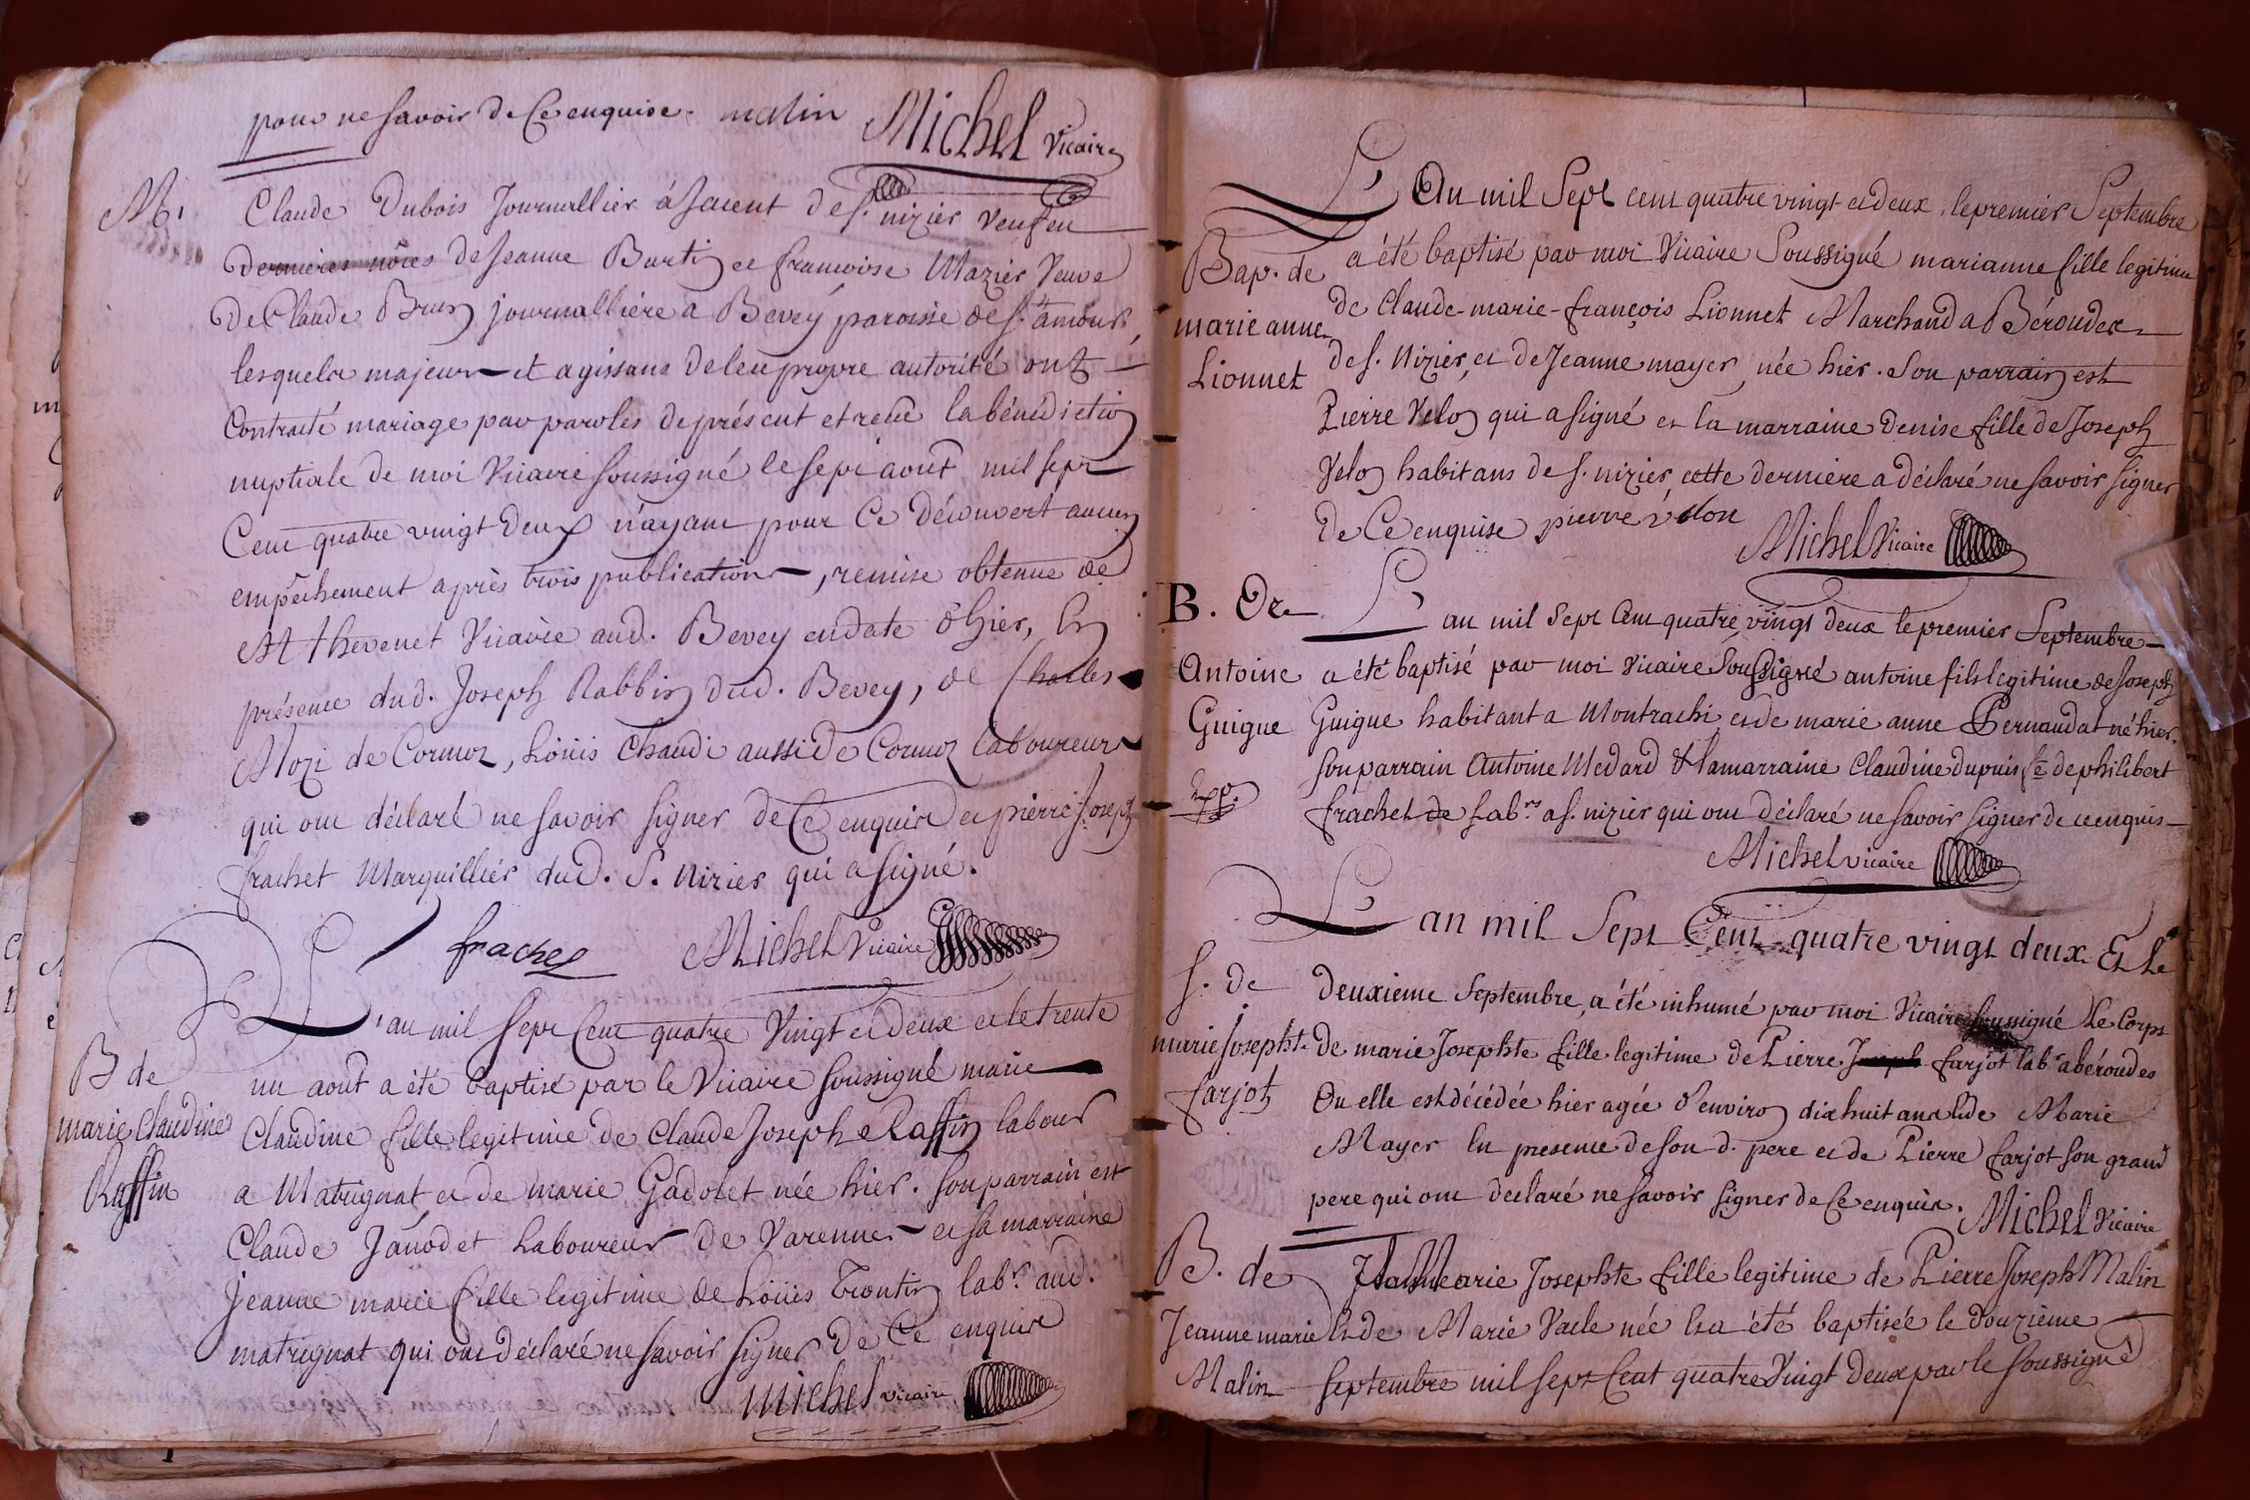 pour ne savoir de Ce enquise. malin Michel vicaire
M.
Claude Dubois Journallier à de S. nizier veuf en
dernieres nôces de Jeanne Burtin et francoise Mazier Veuve
De Claude Brun journalliere a Bevey paroisse de S. amour,
lesquels majeurs et agissans de leur propre autorité ont
Contracté mariage par paroles de présent et recu la bénédiction
nuptiale de moi Vicaire soussigné le sept aout mil sept
Cent quatre vingt Deux n'ayant pour Ce découvert aucun
empêchement après trois publications, remise obtenue de
M thevenet Vicaire aud. Bevey en date d'hier, En
présence dud. Joseph Rabbin dud. Bevey, de Charles
Mozi de Cormoz, Loüis Chaudi aussi de Cormoz Laboureurs
qui ont déclaré ne savoir signer de Ce enquis et pierre Joseph
frachet Marguillier dud. S. Nizier qui a signé.
frachet Michel Vicaire
B de
marie Claudine
Raffin
L'an mil sept Cent quatre Vingt et deux et le trente
un aout a été baptisé par le Vicaire soussigné marie
Claudine fille legitime de Claude Joseph Raffin labour
a Matrignat et de marie Gadolet née hier. son parrain est
Claude Janodet Laboureur de Varennes et sa marraine
Jeanne marie fille legitime de Loüis Trontin labr. aud.
matrignat qui ont déclaré ne savoir signer De Ce enquis
Michel vicaire
L'An mil Sept cent quatre vingt et deux, le premier Septembre
Bap. de
marie anne
Lionnet
a été baptisé par moi Vicaire Soussigné marianne fille legitime
de Claude-marie-françois Lionnet Marchand a Béroudes
de S. Nizier, et de Jeanne mayer, née hier. Son parrain est
Pierre Velon qui a signé et la marraine denise fille de Joseph
Velon habitans de S. nizier, cette derniere a déclaré ne savoir signer
de Ce enquise pierre velon Michel Vicaire
B. De
Antoine
Guigue
L'an mil Sept Cent quatre vingt deux le premier Septembre
a été baptisé par moi Vicaire Soussigné antoine fils legitime de Joseph
Guigue habitant a Montrachi et de marie anne Pernaudat né hier.
Son parrain Antoine Medard & la marraine Claudine dupuis fe de philibert
frachet de Labrs a S. nizier qui ont déclaré ne savoir signer de ce enquis
Michel vicaire
L'an mil Sept Cent quatre vingt deux Et Le
S. de
marie Josephte
farjot
deuxieme Septembre, a été inhumé par moi Vicaire soussigné Le Corps
de marie Josephte fille legitime de Pierre Joseph farjot labr a béroudes
Ou elle est décédée hier agée d'environ dix huit ans & de Marie
Mayer En presence de son d. pere et de Pierre farjot son grand
pere qui ont déclaré ne savoir signer de Ce enquis. Michel Vicaire
B. de
Jeanne marie
Malin
Jeanne Marie Josephte fille legitime de Pierre Joseph Malin
Et de Marie Vacle née Et a été baptisée le douzieme
septembre mil sept Cent quatre Vingt Deux par le soussigné